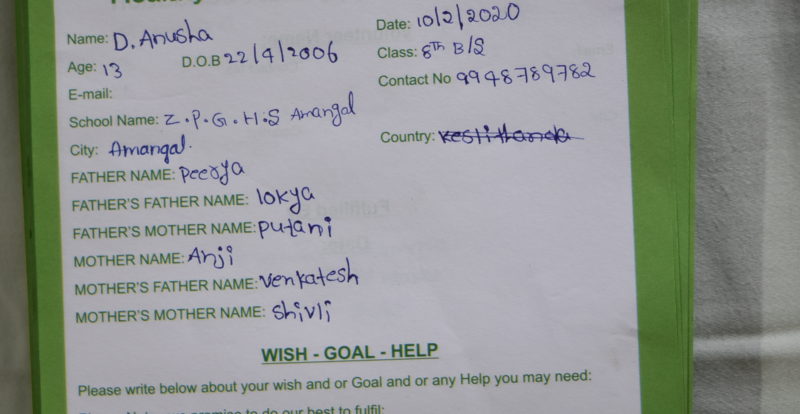 Date: 10/2/2020
Name: D. Anusha
Class: 8th B/S
Age: 13 D.O.B 22/4/2006
Contact No 9948789782
E-mail:
School Name: Z.P.G.H.S Amangal
City: Amangal.
Country:
FATHER NAME: Peerya
FATHER'S FATHER NAME: lokya
FATHER'S MOTHER NAME: putani
MOTHER NAME: Anji
MOTHER'S FATHER NAME: Venkatesh
MOTHER'S MOTHER NAME: Shivli
WISH - GOAL - HELP
Please write below about your wish and or Goal and or any Help you may need:
to do our best to fulfil: